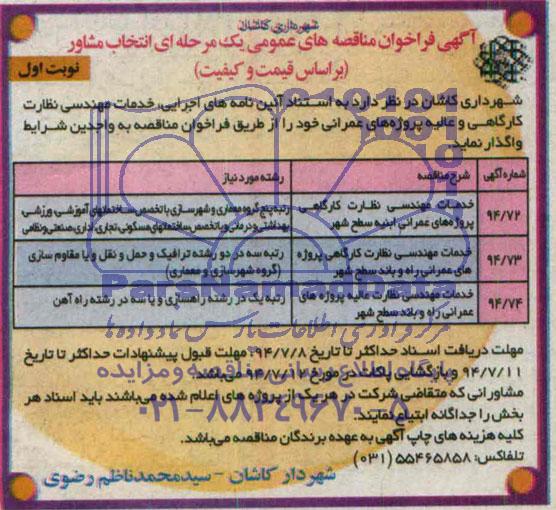 شهرداری کاشان
آگهی فراخوان مناقصه های عمومی یک مرحله ای انتخاب مشاور
(بر اساس قیمت و کیفیت)
نوبت اول
شهرداری کاشان در نظر دارد به استناد آئین نامه های اجرایی، خدمات مهندسی نظارت
کارگاهی و عالیه پروژه‌های عمرانی خود را از طریق فراخوان مناقصه به واجدین شرایط
واگذار نماید.
شماره آگهی شرح مناقصه رشته مورد نیاز
۹۴/۷۲ خدمات مهندسی نظارت کارگاهی پروژه‌های عمرانی ابنیه سطح شهر رتبه پنج گروه معماری و شهرسازی با تخصص ساختمانهای آموزشی، ورزشی بهداشتی و درمانی و یا تخصص ساختمانهای مسکونی، تجاری، اداری، صنعتی و نظامی
۹۴/۷۳ خدمات مهندسی نظارت کارگاهی پروژه های عمرانی راه و باند سطح شهر رتبه سه در دو رشته ترافیک و حمل و نقل و یا مقاوم سازی (گروه شهرسازی و معماری)
۹۴/۷۴ خدمات مهندسی نظارت عالیه پروژه های عمرانی راه و باند سطح شهر رتبه یک در رشته راهسازی و یا سه در رشته راه آهن
ParsNamadData
مهلت دریافت اسناد حداکثر تا تاریخ ۹۴/۷/۸، مهلت قبول پیشنهادات حداکثر تا تاریخ
۹۴/۷/۱۱ و بازگشایی پاکت در مورخ ۹۴/۷/۱۲ می‌باشد.
مشاورانی که متقاضی شرکت در هر یک از پروژه های اعلام شده می‌باشند باید اسناد هر
بخش را جداگانه ابتیاع نمایند.
کلیه هزینه های چاپ آگهی به عهده برندگان مناقصه می‌باشد.
تلفاکس: ۵۵۴۶۵۸۵۸ (۰۳۱)
شهردار کاشان - سیدمحمدناظم رضوی
۰۲۱-۸۸۳۴۹۶۷۰-۵